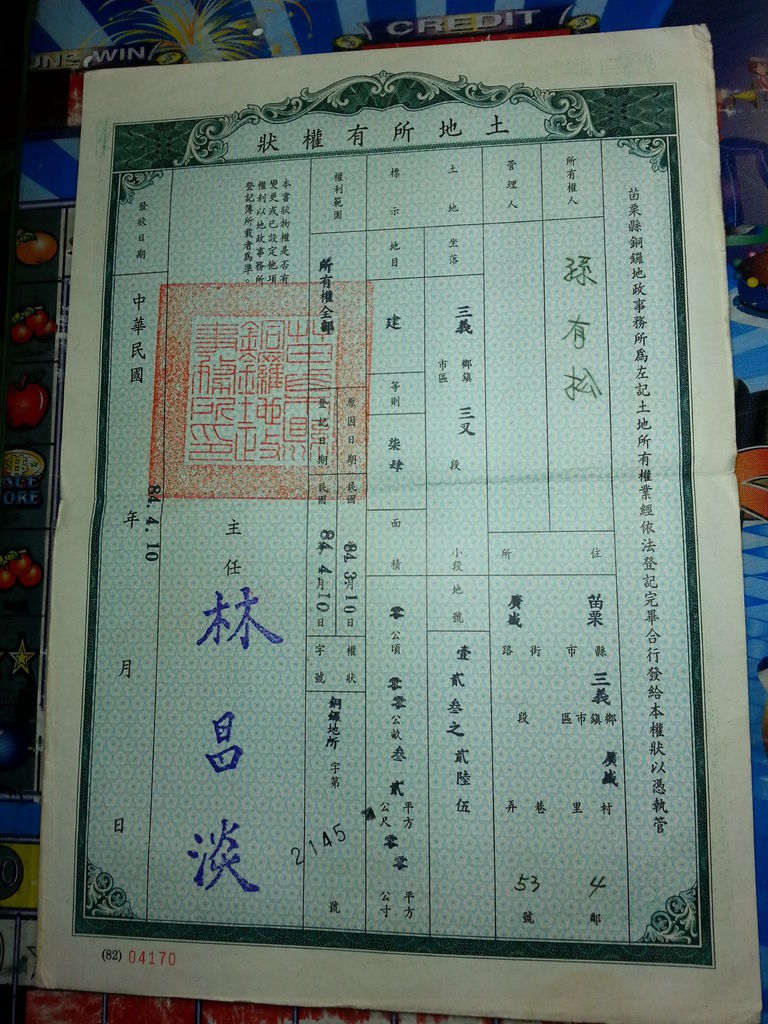 UNS WIN
CREDIT
土地所有權狀
苗栗縣銅鑼地政事務所為左記土地所有權業經依法登記完畢合行發給本權狀以憑執管
所有權人
孫有松
住
苗栗縣市 三義鄉鎮市區 廣盛村里 4鄰
所
廣盛路街 段 巷弄 53號
管理人
土地標示
坐落
三義鄉鎮市區 三叉段 小段
地號
壹貳叁之貳陸伍
地目
建
等則
柒肆
面積
零公頃零零公畝叁貳平方公尺零零平方公寸
權利範圍
所有權全部
原因日期
民國84年3月10日
登記日期
民國84年4月10日
權狀字號
銅鑼地所字第2145號
本書狀物權是否有
變更或已設定他項
權利以地政事務所
登記簿所載者為準。
主任 林昌淡
發狀日期
中華民國 年 月 日
84.4.10
(82) 04170
ORE